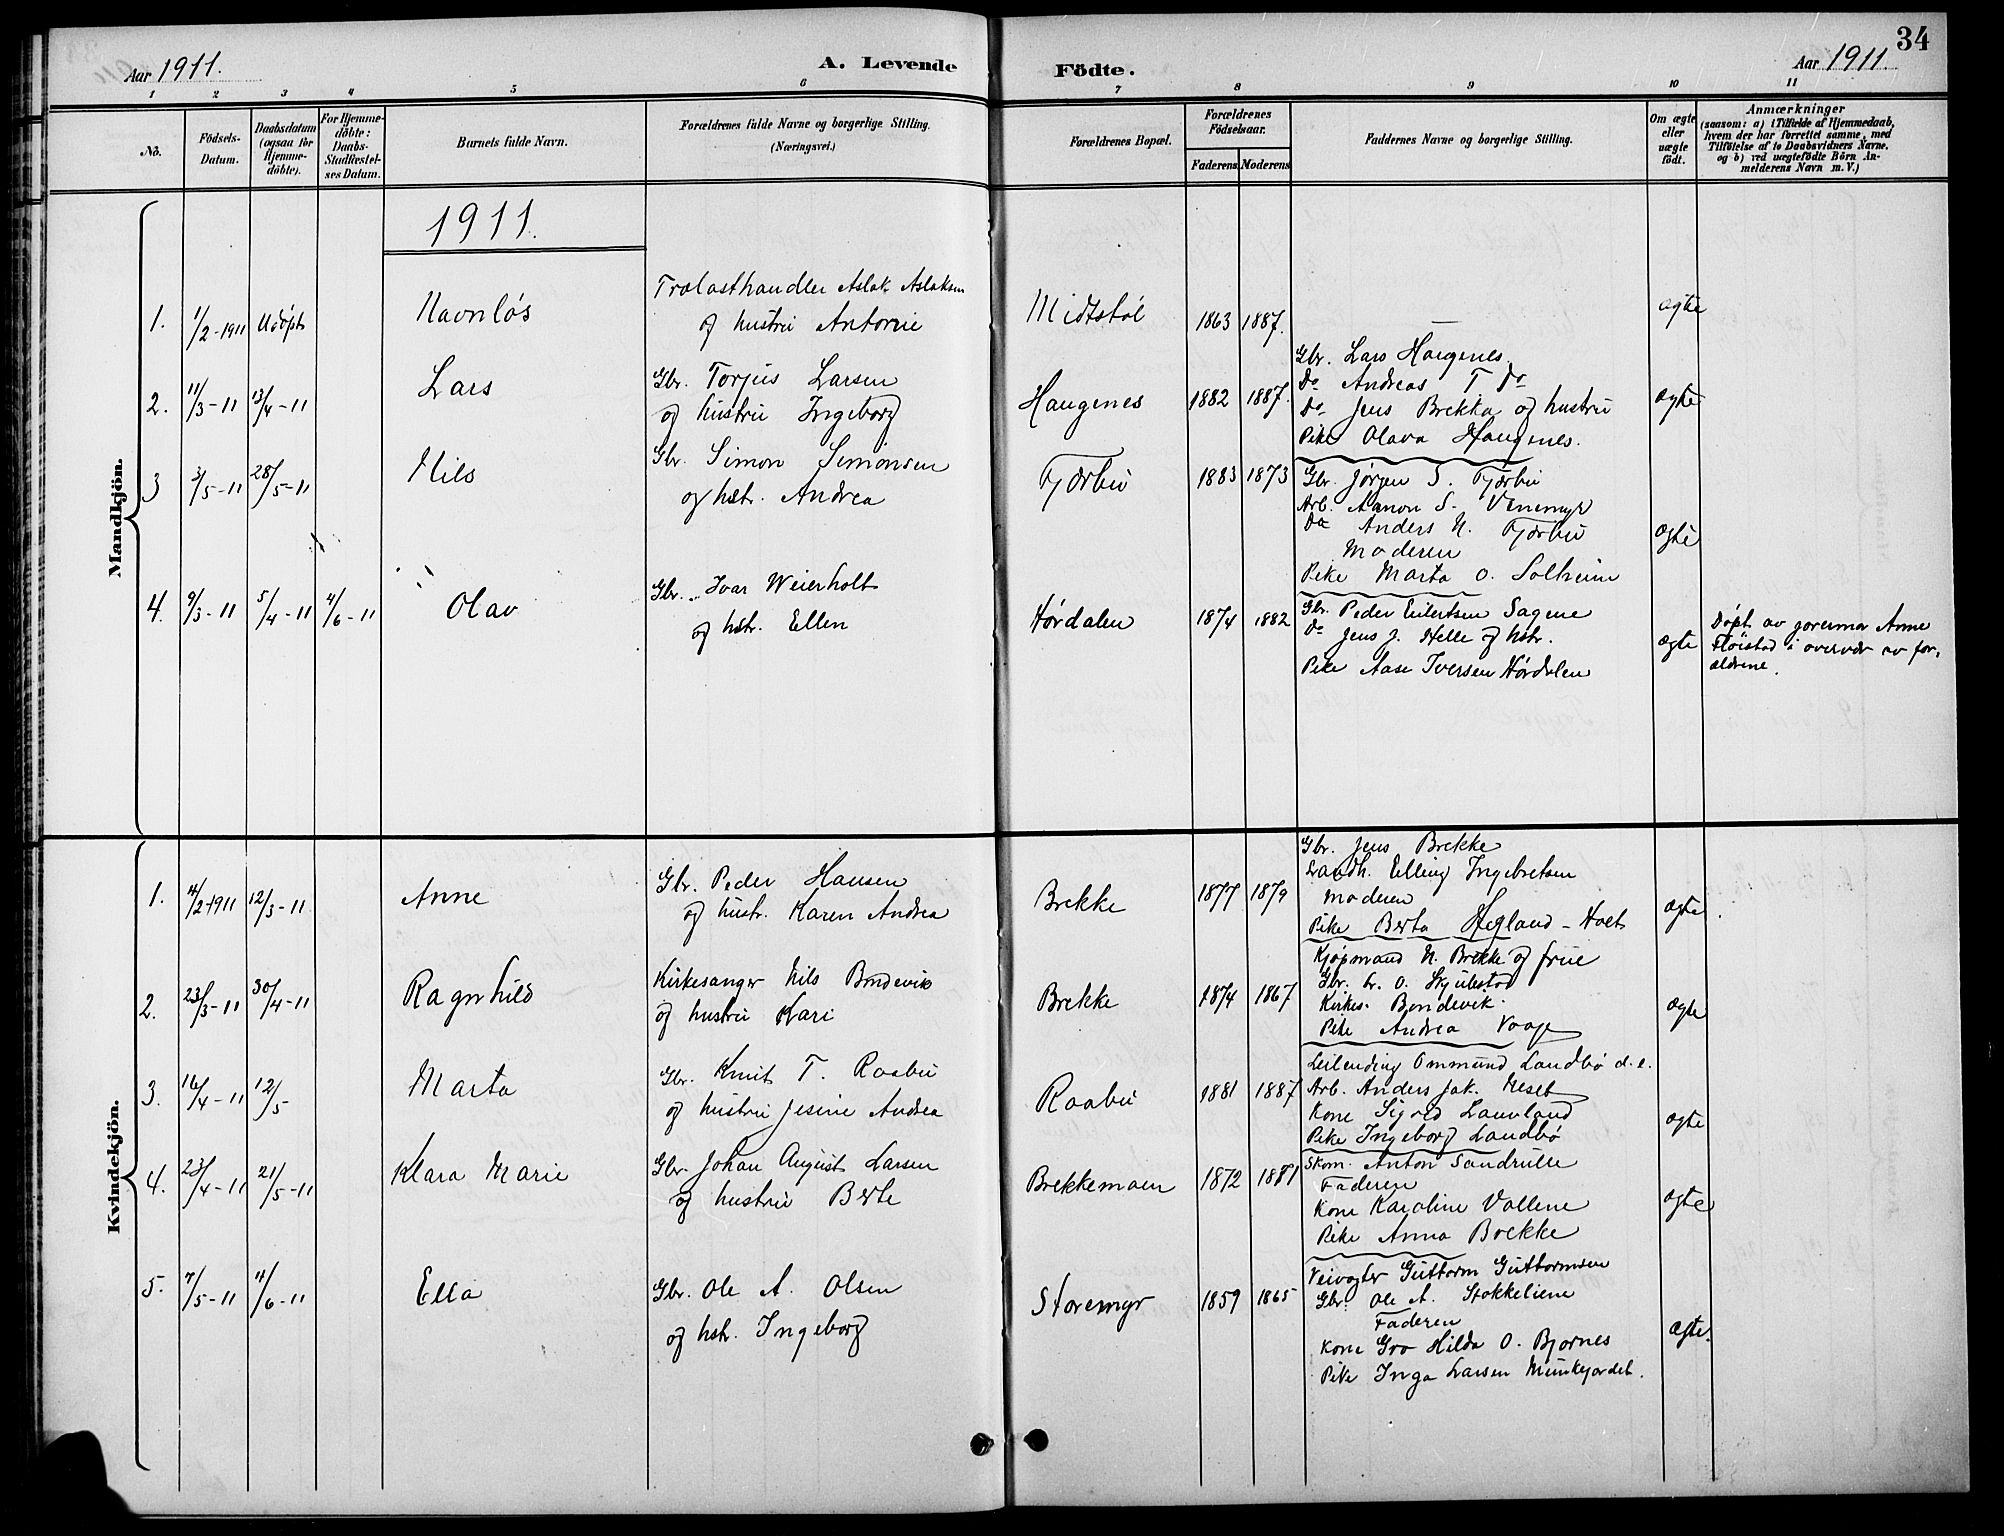 34
Aar 1911.
A. Levende
Födte.
Aar 1911.
1 2 3 4 5 6 7 8 9 10 11
No.
Födsels-Datum.
Daabsdatum (ogsaa for Hjemme-döbte).
For Hjemme-döbte: Daabs-Stadfæstel-ses Datum.
Barnets fulde Navn.
Forældrenes fulde Navne og borgerlige Stilling. (Næringsvei.)
Forældrenes Bopæl.
Forældrenes Födselsaar.
Faderens Moderens
Faddernes Navne og borgerlige Stilling.
Om ægte eller uægte födt.
Anmærkninger
(saasom: a) i Tilfælde af Hjemmedaab,
hvem der har forrettet samme, med
Tilföielse af to Daabsvidners Navne,
og b) ved uægtefödte Börn An-
melderens Navn m. V.)
1911.
Mandkjön.
1. 1/2-1911 Udøpt Navnløs
Trælasthandler Aslak Aslaksen
og hustru Antonie
Midtstøl 1863 1887. — ægte
2. 11/3-11 13/4-11 Lars
Gbr. Torjus Larsen
og hustru Ingeborg
Haugenes 1882 1887.
Gbr. Lars Haugenes.
Do Andreas T. Do
Do Jens Brekka og hustru
Pike Olava Haugenes.
ægte
3 3/5-11 28/5-11 Nils
Gbr. Simon Simonsen
og hstr. Andrea
Fjærbu 1883 1873
Gbr. Jørgen S. Fjærbu
Arb. Aanon S. Venemyr
Do Anders N. Fjærbu
Moderen
Pike Marta O. Solheim
ægte
4. 9/3-11 5/4-11 4/6-11 Olav
Gbr. Ivar Weierholt
og hstr. Ellen
Hørdalen 1874 1882
Gbr. Peder Eilertsen Sagene
Do Jens J. Helle og hstr.
Pike Aase Iversen Hørdalen
ægte
Døpt av joremor Anne
Fløistad i overvær av for-
ældrene.
Kvindekjön.
1. 14/2-1911 12/3-11 Anne
Gbr. Peder Hansen
og hustr. Karen Andrea
Brekke 1877 1879
Gbr. Jens Brekke
Landh. Elling Ingebretsen
Moderen
Pike Berta Hegland - Holt
ægte
2. 23/3-11 30/4-11 Ragnhild
Kirkesanger Nils Bondevik
og hustru Kari
Brekke 1874 1867
Kjøpmand N. Brekke og frue
Gbr. L. O. Skjulestad
Kirkes. Bondevik.
Pike Andrea Vaage
ægte
3. 16/4-11 12/5 Marta
Gbr. Knut T. Raabu
og hustru Jesine Andrea
Raabu 1881 1887
Leilending Ommund Landbø d.e.
Arb. Anders Jak. Neset
Kone Sigrid Lauvland
Pike Ingeborg Landbø
ægte
4. 23/4-11 21/5-11 Klara Marie
Gbr. Johan August Larsen
og hustru Berte
Brekkemoen 1872 1881
Skom. Anton Sandrulle
Faderen
Kone Karoline Vallene
Pike Anna Brekke
ægte
5. 7/5-11 4/6-11 Ella
Gbr. Ole A. Olsen
og hstr. Ingeborg
Storemyr 1859 1865
Veivogter Guttorm Guttormsen
Gbr. Ole A. Stokkeliene
Faderen
Kone Gro Hilda O. Bjornes
Pike Inga Larsen Munkejordet.
ægte.